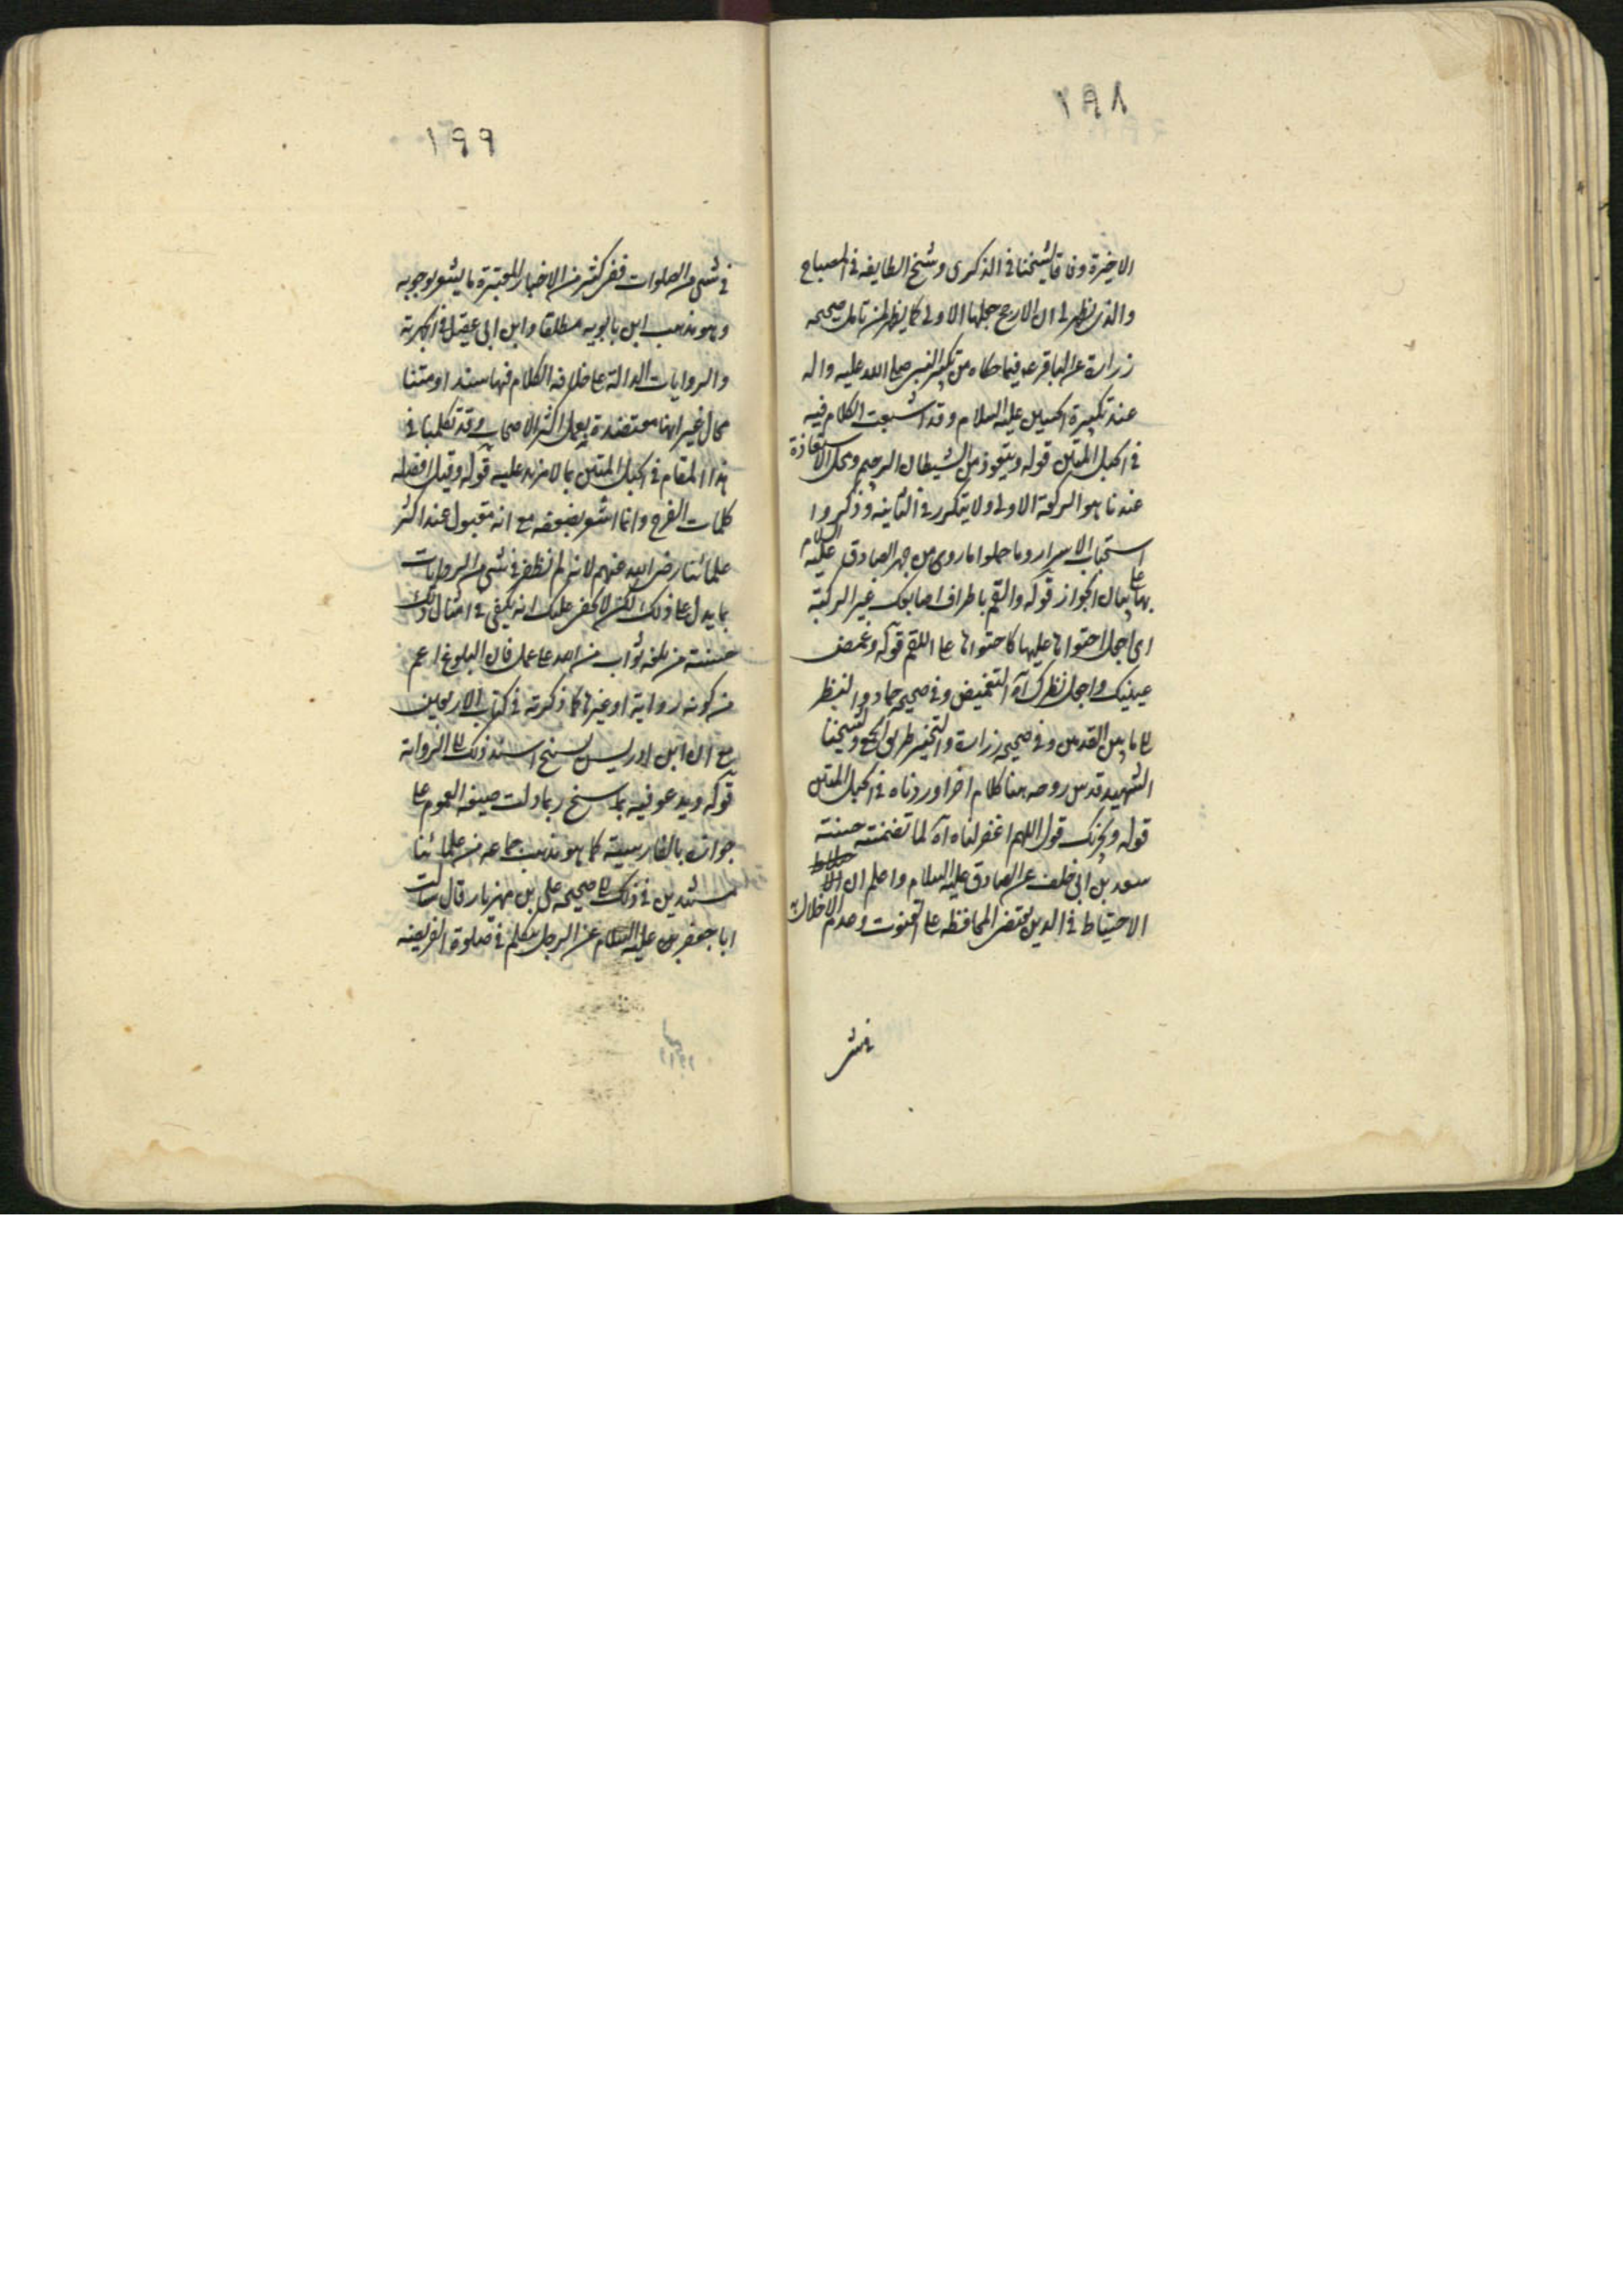 ١٩٨
الاخيرة وفاقا لشيخنا في الذكرى وشيخ الطايفه في المصباح
والذي يظهر لي ان الارجح جعلها الاولى كما يظهر لمن تامل صحيحه
زرارة عن الباقر عه فيما حكاه من تكبير النبي صلى الله عليه واله
عند تكبيرة الحسين عليه السلام وقد اشبعت الكلام فيه
في الحبل المتين قوله ويتعوذ من الشيطان الرجيم ومحل الاستعاذة
عندنا هو الركعة الاولى ولا يتكرر في الثانيه وذكروا
استحباب الاسرار وما حملوا ما روى من جهر الصادق عليه السلام
بها على بيان الجواز قوله والقم باطراف اصابعك عين الركبة
اى اجعل احتوائها عليها كاحتوائها على اللقم قوله وغمض
عينيك واجعل نظرك آه التغميض في صحيحه حماد والنظر
الى ما بين القدمين في صحيحه زرارة والتخيير طريق الجمع ولشيخنا
الشهيد قدس روحه هنا كلام اخر اوردناه في الحبل المتين
قوله ويجزيك قول اللهم اغفر لنا آه كما تضمنته حسنته
سعد بن ابى خلف عن الصادق عليه السلام واعلم ان
الاحتياط في الدين يقتضى المحافظه على القنوت وعدم الاخلال به
في شى
١٩٩
في شى من الصلوات ففى كثير من الاخبار المعتبرة ما يشعر بوجوبه
وهو مذهب ابن بابويه مطلقا وابن ابى عقيل في الجهرية
والروايات الدالة على خلافه الكلام فيها سندا ومتنا
مجال غير انها معتضدة بعمل اكثر الاصحاب وقد تكلمنا في
هذا المقام في الحبل المتين بما لا مزيد عليه قوله وقيل افضله
كلمات الفرج وانما اشعر بضعفه مع انه مقبول عند اكثر
علمائنا رضى الله عنهم لانى لم نظفر في شى من الروايات
بما يدل على ذلك لكن لا يخفى عليك انه يكفى في امثال ذلك
حسنته من بلغه ثواب من الله على عمل فان البلوغ اعم
من كونه رواية او غيرها كما ذكرته في كتاب الاربعين
مع ان ابن ادريس اسند ذلك الى الرواية
قوله ويدعو فيه بما سنح ربما دلت صيغه العموم على
جوازه بالفارسية كما هو مذهب جماعه من علمائنا
مستندين في ذلك الى صحيحه على بن مهزيار قال سالت
ابا جعفر عليه السلام عن الرجل يتكلم في صلوة الفريضه